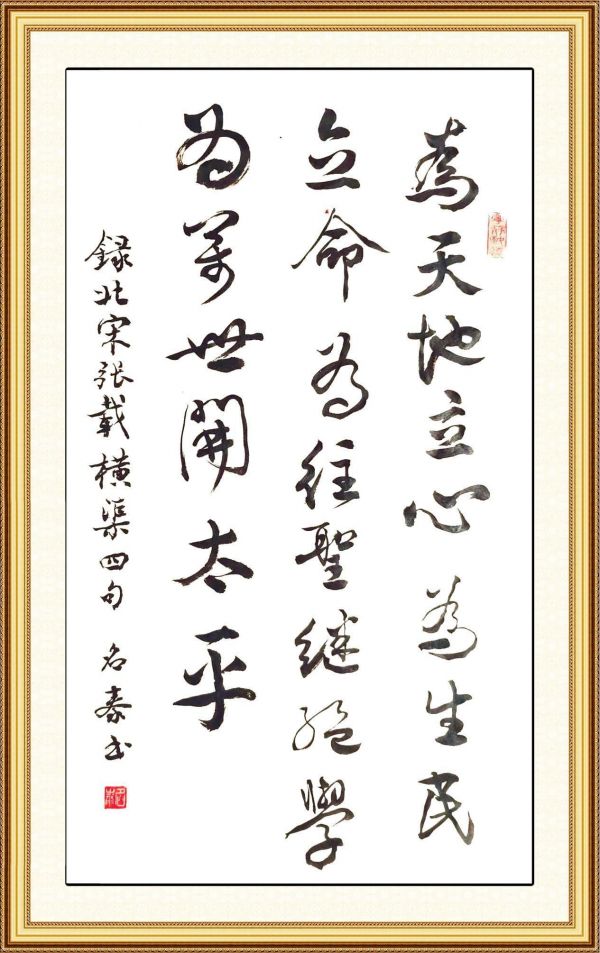 為天地立心為生民
立命為往聖継絕學
為萬世開太平
録北宋張載橫渠四句 名泰书
名泰